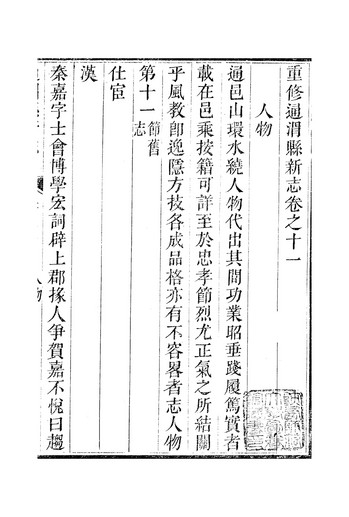 重修通渭縣新志卷之十一
人物
通邑山環水繞人物代出其間功業昭垂踐履篤實者
載在邑乘按籍可詳至於忠孝節烈尤正氣之所結關
乎風教卽逸隱方技各成品格亦有不容畧者志人物
第十一節舊志
仕宦
漢
秦嘉字士會博學宏詞辟上郡掾人爭賀嘉不悅曰趨
人物